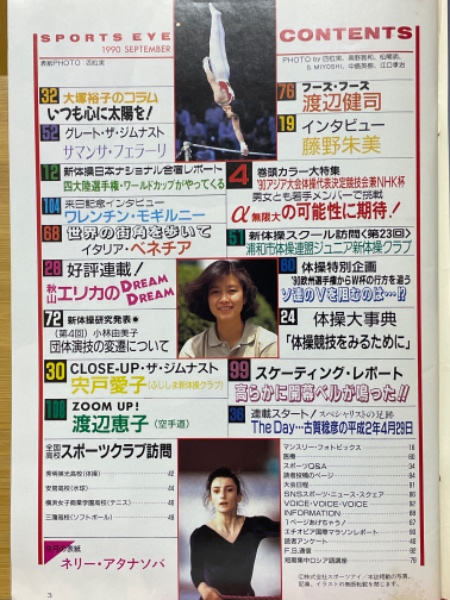 SPORTS EYE
1990 SEPTEMBER
表紙PHOTO 四位実
CONTENTS
PHOTO by 四位実、高野雅和、松尾武、
S. MIYOSHI、中島英樹、江口孝治
32 大塚裕子のコラム
いつも心に太陽を!
52 グレート・ザ・ジムナスト
サマンサ・フェラーリ
12 新体操日本ナショナル合宿レポート
四大陸選手権・ワールドカップがやってくる
104 来日記念インタビュー
ワレンチン・モギルニー
68 世界の街角を歩いて
イタリア・ベネチア
28 好評連載!
秋山エリカのDREAM DREAM
72 新体操研究発表
(第4回) 小林由美子
団体演技の変遷について
30 CLOSE-UP・ザ・ジムナスト
宍戸愛子(ふじしま新体操クラブ)
100 ZOOM UP!
渡辺恵子(空手道)
76 フーズ・フーズ
渡辺健司
19 インタビュー
藤野朱美
4 巻頭カラー大特集
'90アジア大会体操代表決定競技会兼NHK杯
男女とも若手メンバーで挑戦
α無限大の可能性に期待!
51 新体操スクール訪問〈第23回〉
浦和市体操連盟ジュニア新体操クラブ
60 体操特別企画
'90欧州選手権からW杯の行方を追う
ソ連のVを阻むのは…!?
24 体操大事典
「体操競技をみるために」
99 スケーティング・レポート
高らかに開幕ベルが鳴った!!
36 連載スタート!スペシャリストの足跡
The Day…古賀稔彦の平成2年4月29日
全国高校 スポーツクラブ訪問
埼玉栄光高校(体操) 42
安房高校(水球) 44
横浜女子商業学園高校(テニス) 46
三潴高校(ソフトボール) 48
今月の表紙
ネリー・アタナソバ
マンスリー・フォトピックス 16
医療 80
スポーツQ&A 34
読者投稿のページ 84
大会日程 91
SNSスポーツ・ニュース・スクェア 86
VOICE・VOICE・VOICE 92
INFORMATION 88
1ページあげちゃう! 67
エチオピア国際マラソンレポート 93
読者アンケート 48
F.B.通信 92
短期集中ロシア語講座 79
©株式会社スポーツアイ/本誌掲載の写真、
記事、イラストの無断転載を禁じます。
3